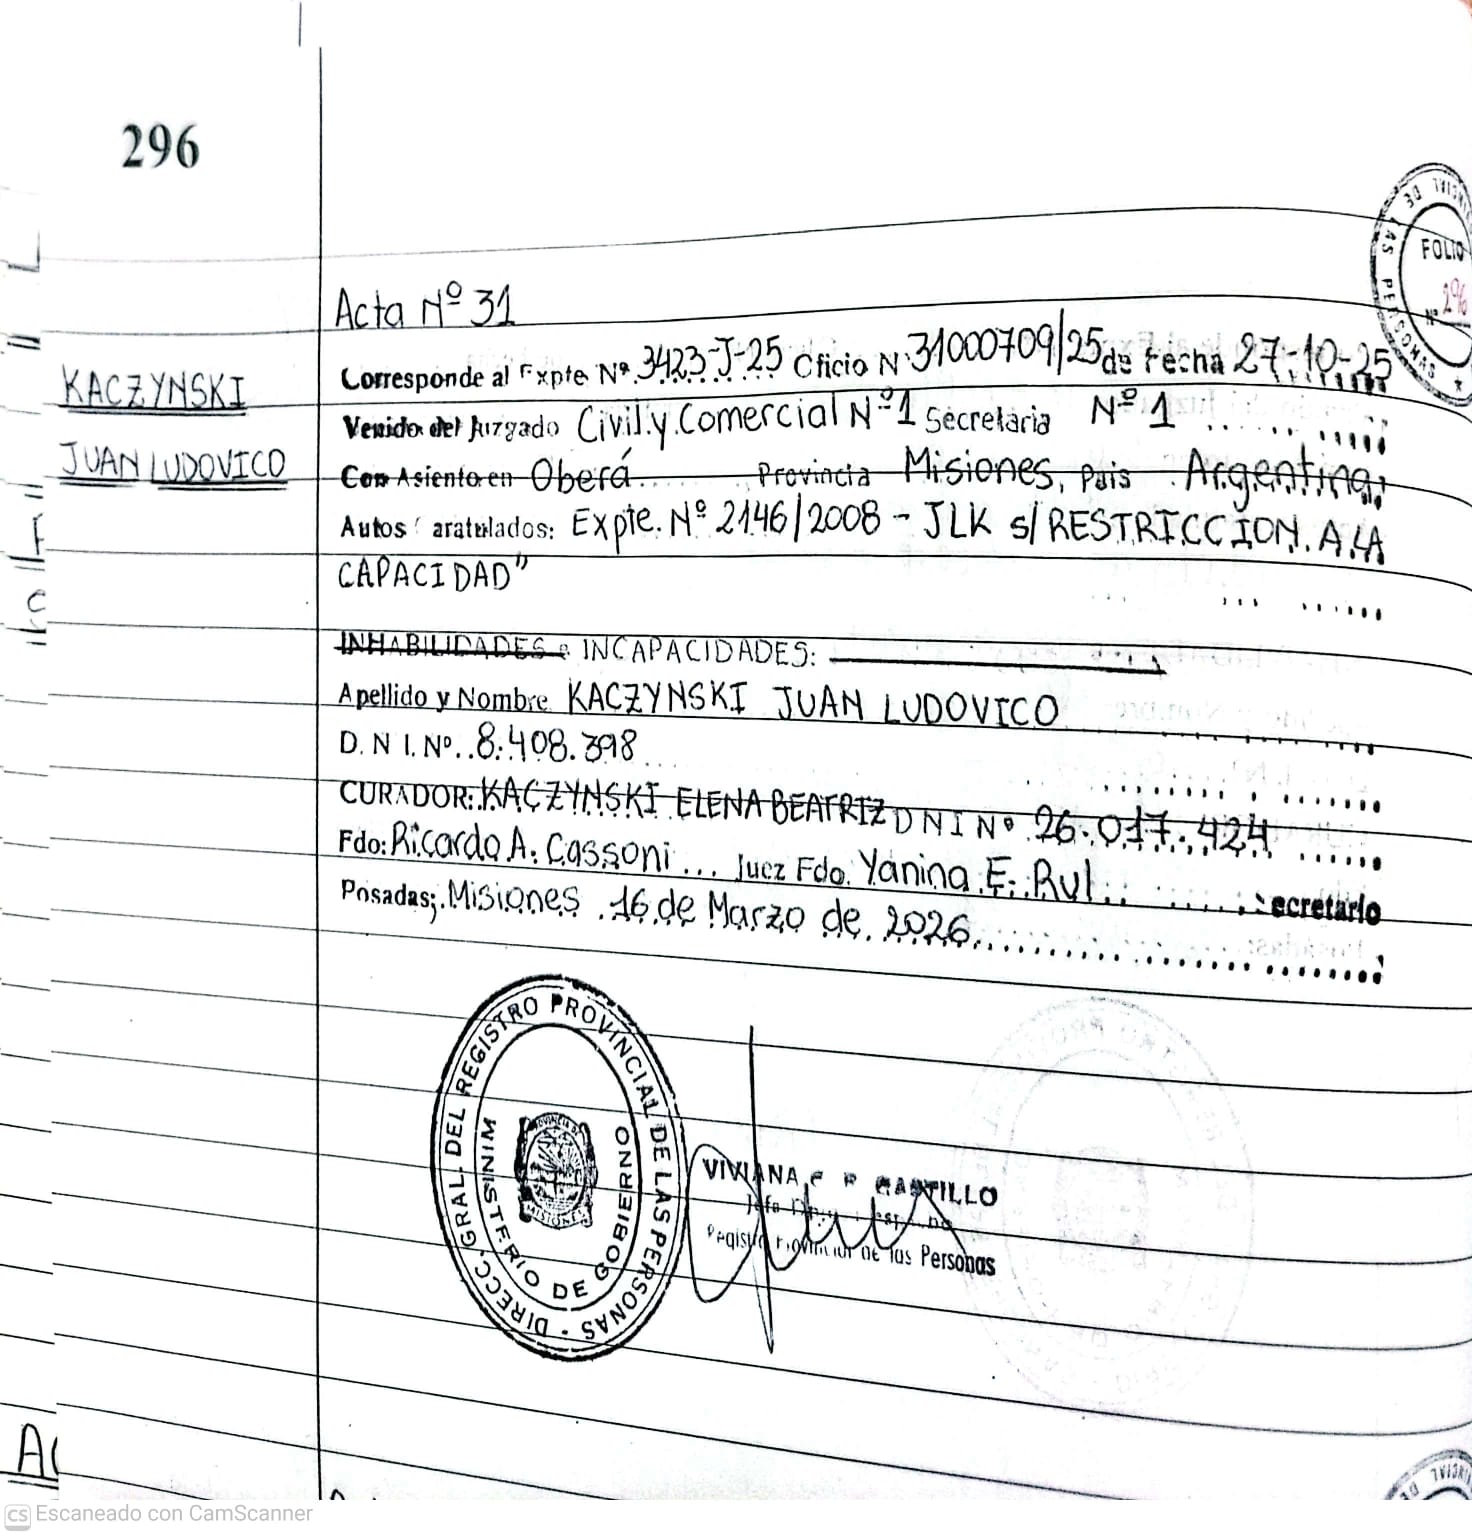 296
FOLIO
Nº 296
DE LAS PERSONAS
Acta Nº 31
KACZYNSKI
JUAN LUDOVICO
Corresponde al Expte Nº 3423-J-25 Oficio Nº 31000709/25 de Fecha 27-10-25
Venido del Juzgado Civil y Comercial Nº 1 Secretaria Nº 1
Con Asiento en Oberá Provincia Misiones, Pais Argentina,
Autos aratulados: Expte. Nº 2146/2008 - JLK s/ RESTRICCION A LA
CAPACIDAD"
INHABILIDADES e INCAPACIDADES:
Apellido y Nombre KACZYNSKI JUAN LUDOVICO
D.N.I. Nº 8.408.398
CURADOR: KACZYNSKI ELENA BEATRIZ DNI Nº 26.017.424
Fdo: Ricardo A. Cassoni Juez Fdo. Yanina E. Rul ecretario
Posadas; Misiones 16 de Marzo de 2026
DIRECC. GRAL. DEL REGISTRO PROVINCIAL DE LAS PERSONAS
MINISTERIO DE GOBIERNO
MISIONES
VIVIANA CASTILLO
Registro Provincial de las Personas
CS Escaneado con CamScanner